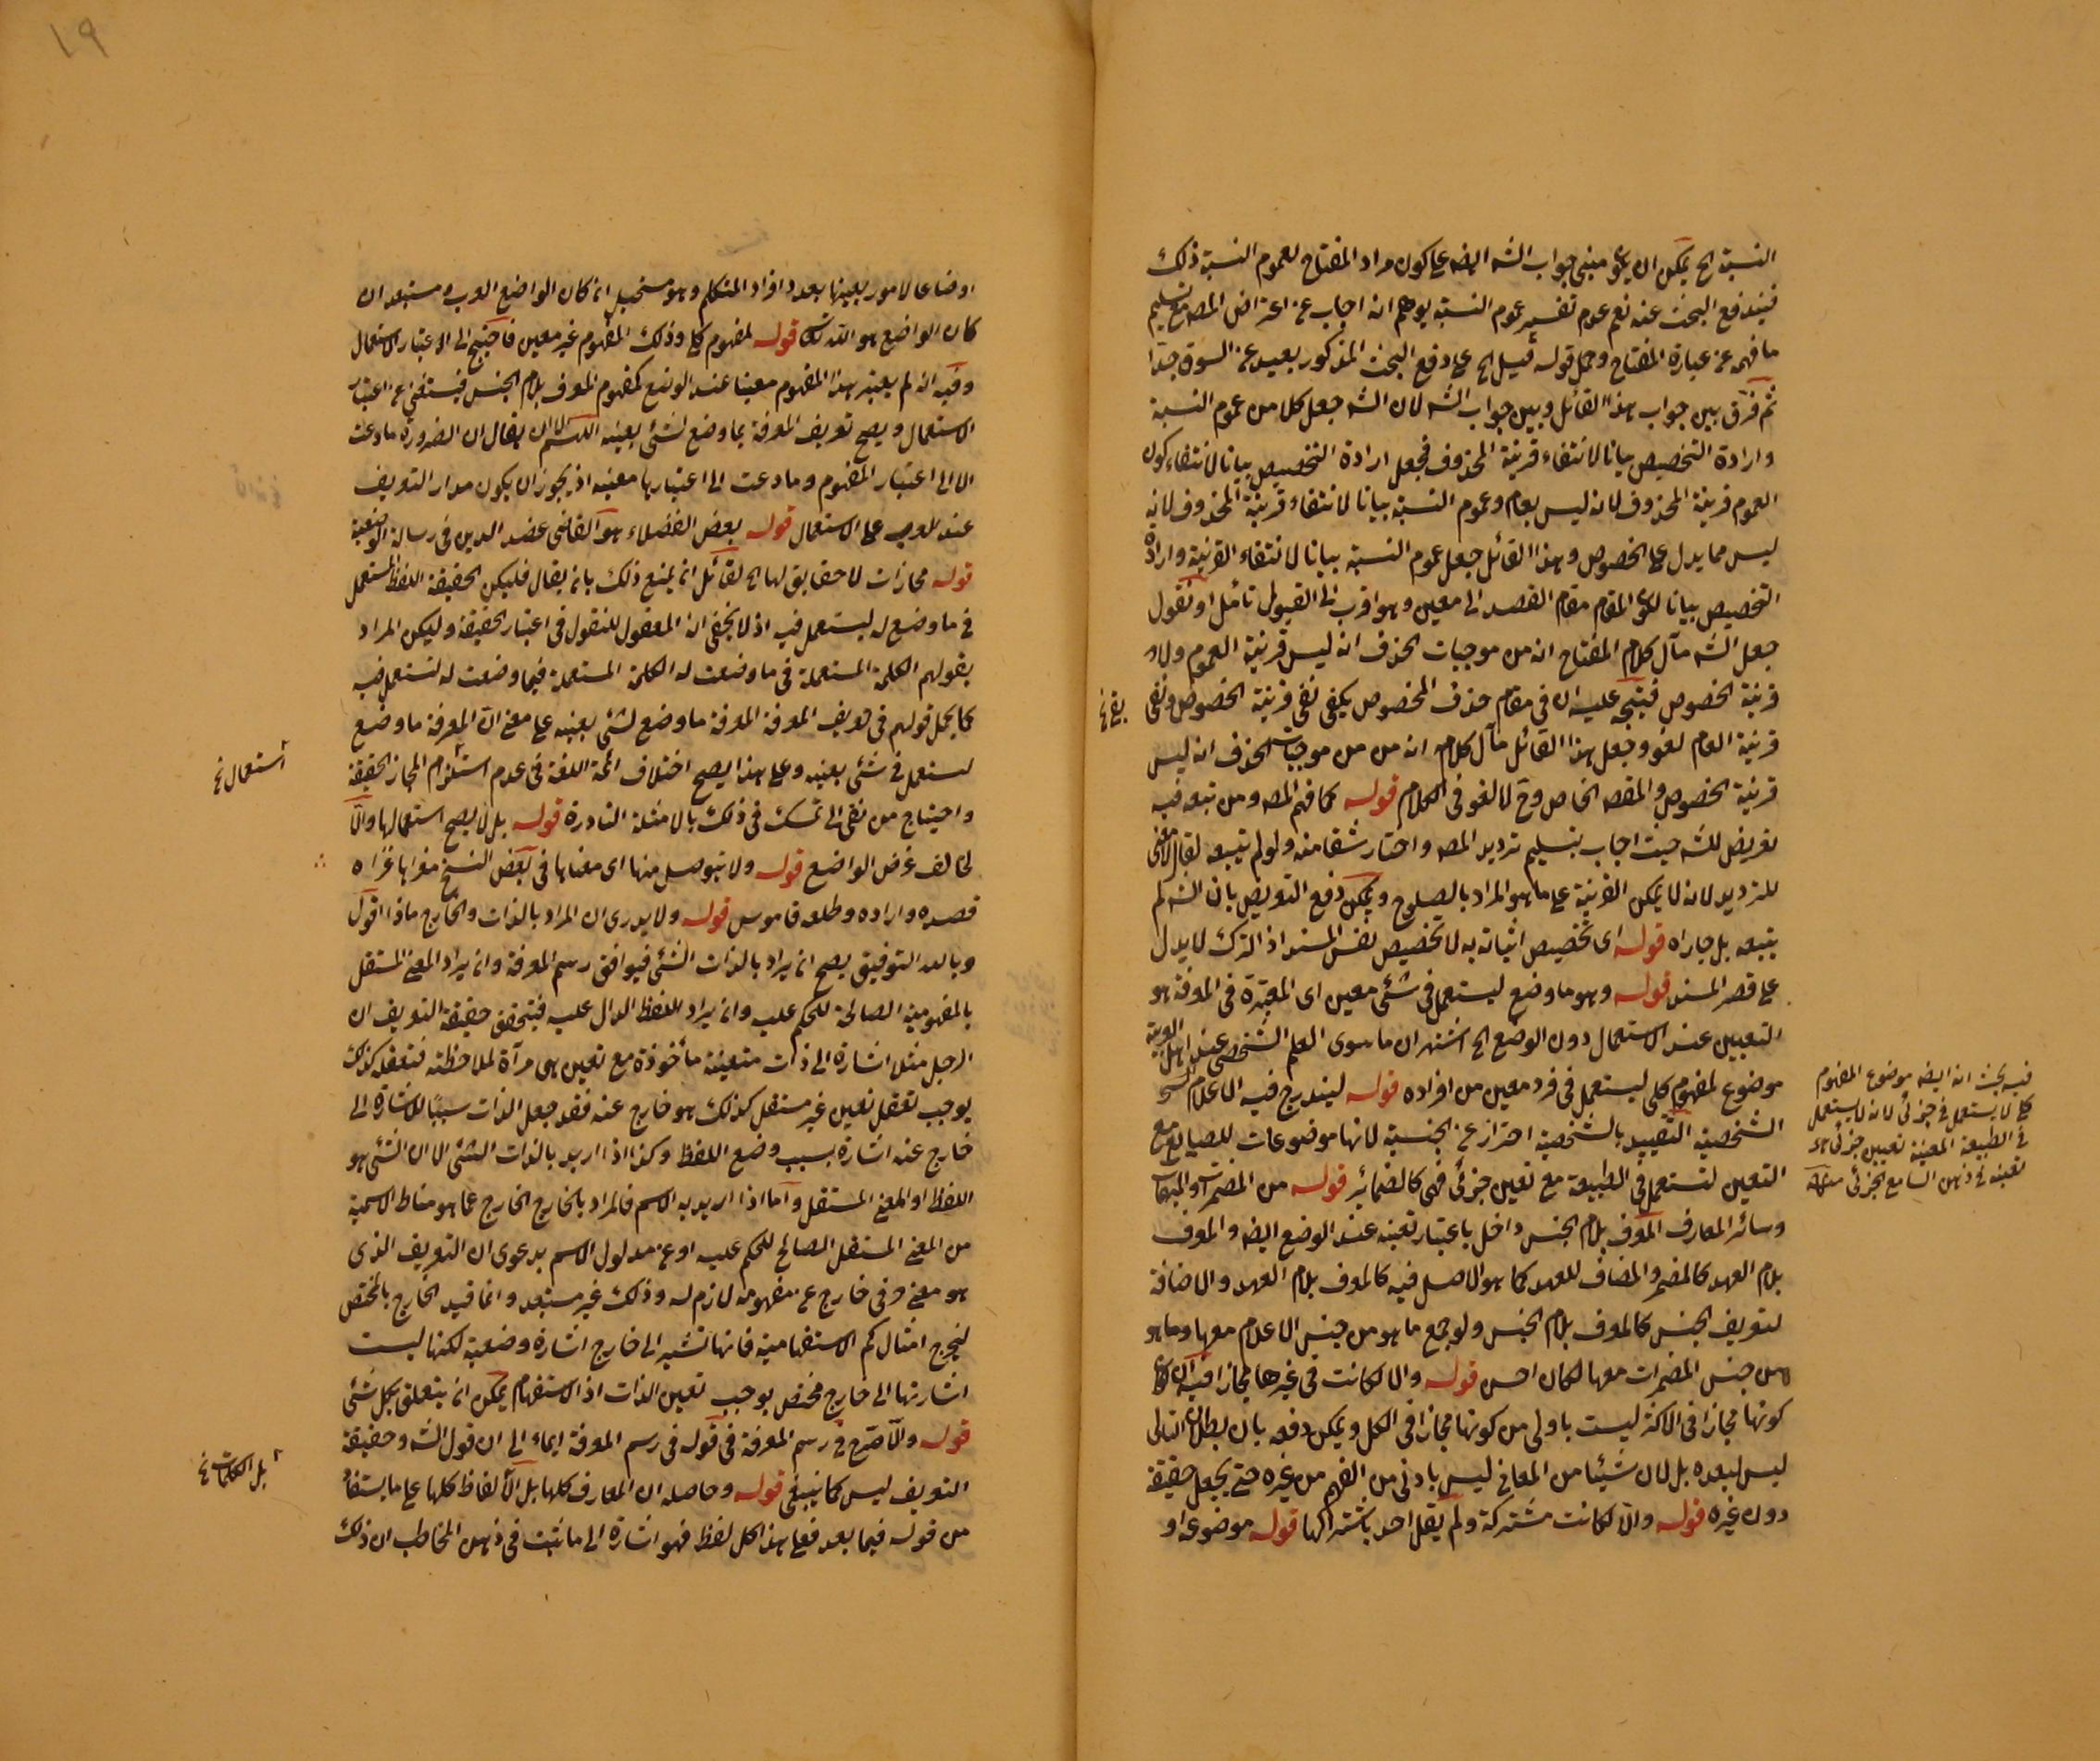 النسبة الخ يمكن ان يكون مبنى جواب الشه ايضه على كون مراد المفتاح لعموم النسبة ذلك
فيندفع البحث عنه نعم عدم تفسير عموم النسبة يوهم انه اجاب عن اعتراض المصه مع تسليم
ما فهمه عن عبارة المفتاح وحمل قوله قيل الخ على دفع البحث المذكور بعيد عن السوق جدا
ثم فرق بين جواب هذا القائل وبين جواب الشه لان الشه جعل كلا من عموم النسبة
وارادة التخصيص بيانا لانتفاء قرينة المحذوف فجعل ارادة التخصيص بيانا لانتفاء كون
العموم قرينة المحذوف لانه ليس بعام وعموم النسبة بيانا لانتفاء قرينة المحذوف لانه
ليس مما يدل على الخصوص وهذا القائل جعل عموم النسبة بيانا لانتفاء القرينة وارادة
التخصيص بيانا لكون المقام مقام القصد الى معين وهو اقرب الى القبول تأمل او نقول
جعل الشه مآل كلام المفتاح ان من موجبات الحذف ان ليس قرينة العموم ولا
قرينة الخصوص فيتجه عليه ان في مقام حذف المخصوص يكفى نفى قرينة الخصوص ونفى
قرينة العام لغو وجعل هذا القائل مآل كلامه ان من موجبات الحذف ان ليس
قرينة الخصوص والمقصه الخاص وح لا لغو في الكلام قوله كما فهم المصه ومن تبعه فيه
تعريض للشه حيث اجاب بتسليم ترديد المصه واختار شقا منه ولو لم يتبعه لقال لا معنى
للترديد لانه لا يمكن القرينة على ما هو المراد بالصلوح ويمكن دفع التعريض بان الشه لم
يتبعه بل جاراه قوله اى تخصيص اثباته به لا تخصيص نفس المسند اذ الترك لا يدل
على قصر المسند قوله وهو ما وضع ليستعمل في شئ معين اى المعتبرة في المعرفة هو
التعيين عند الاستعمال دون الوضع الخ اشتهر ان ما سوى العلم الشخصى عند اهل العربية
موضوع لمفهوم كلى ليستعمل في فرد معين من افراده قوله ليندرج فيه الاعلام الخ
الشخصية التقييد بالشخصية احتراز عن الجنسية لانها موضوعات للطبايع مع
التعين لتستعمل في الطبيعة مع تعين جزئى فهى كالضمائر قوله من المضمرات والمبهمات
وسائر المعارف المعرف بلام الجنس داخل باعتبار تعينه عند الوضع ايضه والمعرف
بلام العهد كالمضمر والمضاف للعهد كما هو الاصل فيه كالمعرف بلام العهد والاضافة
لتعريف الجنس كالمعرف بلام الجنس ولو جمع ما هو من جنس الاعلام معها وما هو
من جنس المضمرات معها لكان احسن قوله والا لكانت في غيرها مجازا فيه ان
كونها مجازا في الاكثر ليست باولى من كونها مجازا في الكل ويمكن دفعه بان بطلان التالى
ليس لبعده بل لان شيئا من المعانى ليس بادنى من الفهم من غيره حتى يجعل حقيقة
دون غيره قوله والا لكانت مشتركة ولم يقل احد باشتراكها قوله موضوعة او
بقى نخ
فيه بحث ان ايضه موضوع المفهوم
كلى لا يستعمل في جزئى لانه لا يستعمل
في الطبيعة المعينة تعيين جزئى هو
تعينه في ذهن السامع الجزئى
١٩
اوضاعا لامور بعينها بعدد افراد المتكلم وهو مستحيل ان كان الواضع العرب ومستبعد ان
كان الواضع هو الله تعالى قوله لمفهوم كلى وذلك المفهوم غير معين فاحتيج الى الاعتبار الاستعمال
وفيه ان لم يعتبر هذا المفهوم معينا عند الوضع كمفهوم المعرف بلام الجنس فيستغنى عن اعتبار
الاستعمال ويصح تعريف المعرفة بما وضع لشئ بعينه اللهم الا ان يقال ان الضرورة ما دعت
الا الى اعتبار المفهوم وما دعت الى اعتبارها معينه اذ يجوز ان يكون مدار التعريف
عند العرب على الاستعمال قوله بعض الفضلاء هو القاضى عضد الدين في رسالة الوضعية
قوله مجازات لا حقايق لها الخ لقائل ان يمنع ذلك بان يقال فليكن الحقيقة اللفظ المستعمل
في ما وضع له ليستعمل فيه اذ لا يخفى ان المعقول للنقول في اعتبار الحقيقة وليكن المراد
بقولهم الكلمة المستعملة في ما وضعت له الكلمة المستعملة فيما وضعت له لتستعمل فيه
كما يحمل قولهم في تعريف المعرفة المعرفة ما وضع لشئ بعينه على معنى ان المعرفة ما وضع
ليستعمل في شئ بعينه وعلى هذا يصح اختلاف ائمة اللغة في عدم استلزام المجاز الحقيقة
واحتياج من نفى الى تمسك في ذلك بالامثلة النادرة قوله بل لا يصح استعمالها والا
لخالف غرض الواضع قوله ولا يتوصل منها اى معناها في بعض النسخ مغزاها غزاه
قصده واراده وطلبه قاموس قوله ولا يدرى ان المراد بالذات والخارج ماذا اقول
وبالله التوفيق يصح ان يراد بالذات الشئ فيوافق رسم المعرفة وان يراد المعنى المستقل
بالمفهومية الصالحة للحكم عليه وان يراد اللفظ الدال عليه فيتحقق حقيقة التعريف ان
الرجل مثلا اشارة الى ذات متعينة مأخوذة مع تعين هى مرآة لملاحظته فتعقله كذلك
يوجب تعقل تعين غير مستقل كذلك هو خارج عنه فقد جعل الذات سببا للاشارة الى
خارج عنه اشارة بسبب وضع اللفظ وكذا اذا اريد بالذات الشئ الا ان الشئ هو
اللفظ او المعنى المستقل واما اذا اريد به الاسم فالمراد بالخارج الخارج عما هو مناط الاسمية
من المعنى المستقل الصالح للحكم عليه او عن مدلول الاسم بدعوى ان التعريف الذى
هو معنى حرفى خارج عن مفهومه لازم له وذلك غير مستبعد وانما قيد الخارج بالمختص
ليخرج امثال كم الاستفهامية فانها تشير الى خارج اشارة وضعية لكنها ليست
اشارتها الى خارج مختص يوجب تعين الذات اذ الاستفهام يمكن ان يتعلق بكل شئ
قوله والا صرح في رسم المعرفة في قوله في رسم المعرفة ايماء الى ان قول الشه وحقيقة
التعريف ليس كما ينبغى قوله وحاصله ان المعارف كلها بل الالفاظ كلها على ما يستفاد
من قوله فيما بعد فعلى هذا كل لفظ فهو اشارة الى ما ثبت في ذهن المخاطب ان ذلك
استعمال نخ
بل الكلمات نخ